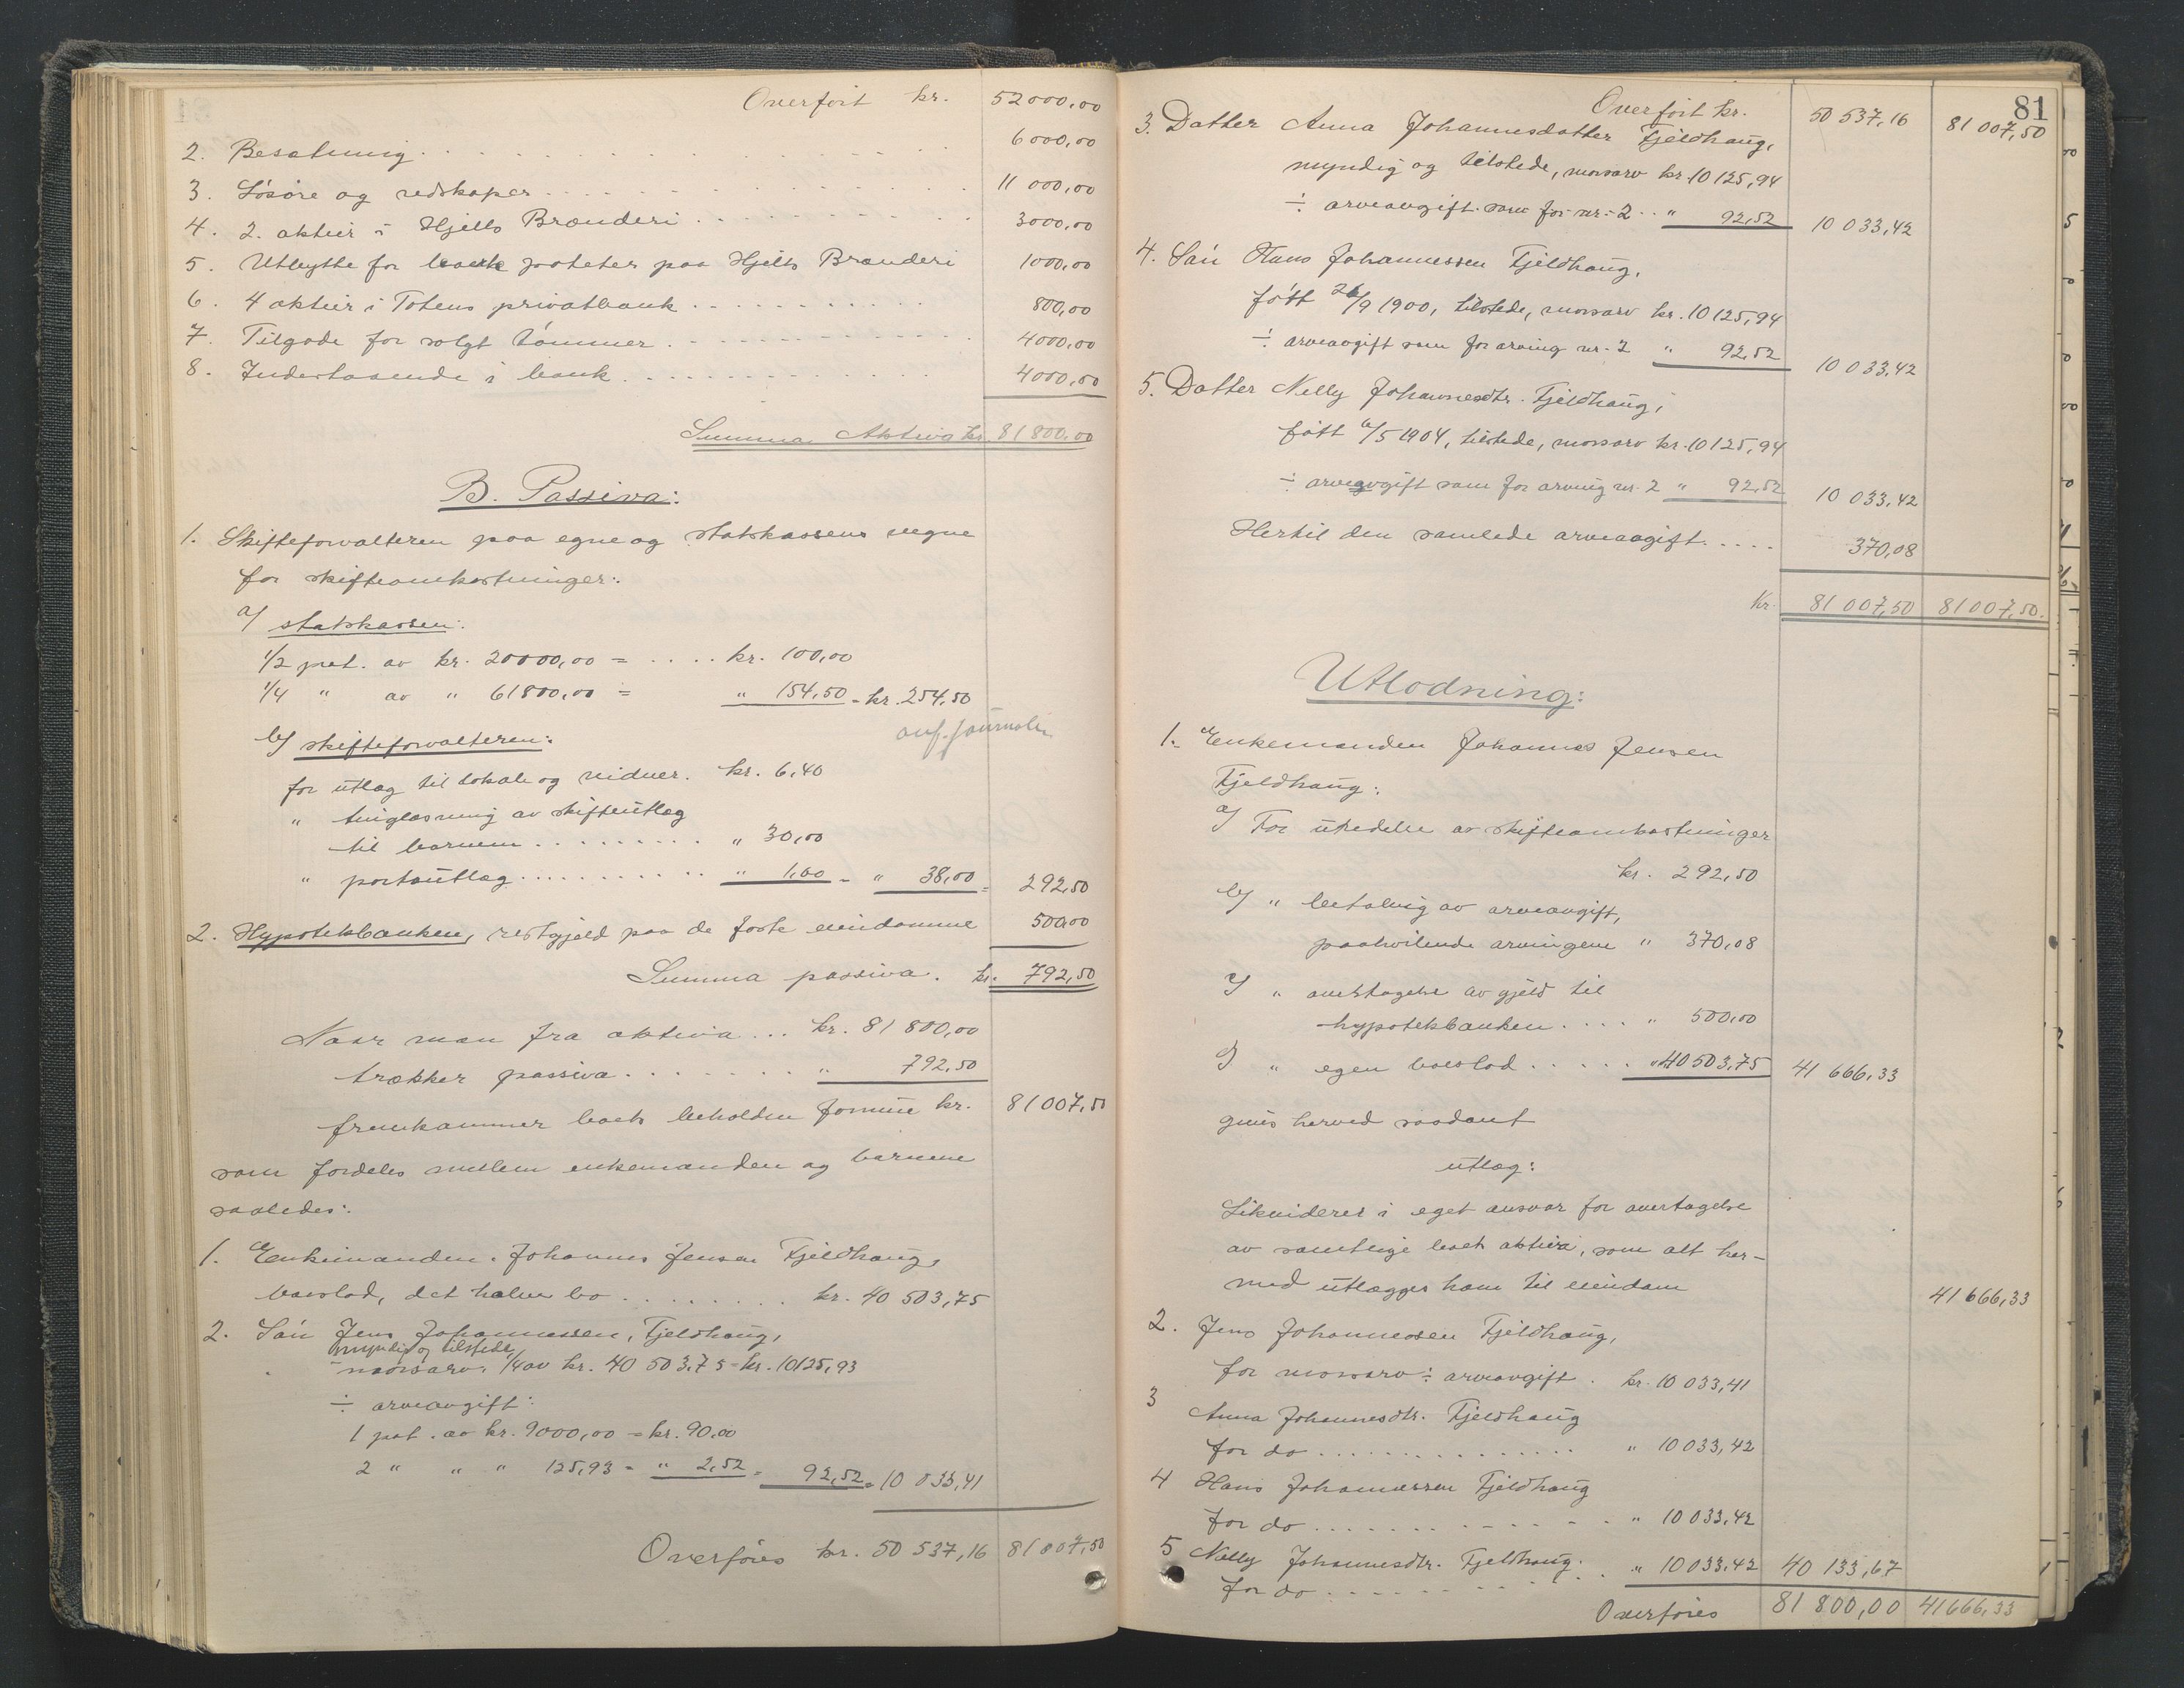 Overført kr. 52000,00
2. Besætning . . . . . 6000,00
3. Løsøre og redskaper . . . . . 11 000,00
4. 2 aktier i Hjells Brænderi . . . . . 3000,00
5. Utbytte for poteter paa Hjells Brænderi 1000,00
6. 4 aktier i Totens privatbank . . . . . 800,00
7. Tilgode for solgt tømmer . . . . . 4000,00
8. Indestaaende i bank . . . . . 4000,00
Summa Aktiva kr. 81 800,00
B. Passiva:
1. Skifteforvalteren paa egne og statskassens vegne
for skifteomkostninger:
a/ statskassen:
1/2 pct. av kr. 20000,00 = . . . . kr. 100,00
1/4 " av " 61800,00 = " 154,50 = kr. 254,50
b/ skifteforvalteren: anf. journalen
for utlæg til lokale og vidner. kr. 6,40
" tinglæsning av skifteutlæg
til barnem . . . . . " 30,00
" portoutlæg . . . . . " 1,60 = " 38,00 = 292,50
2. Hypotekbanken, restgjæld paa de faste eiendomme 500,00
Summa passiva. kr. 792,50
Naar man fra aktiva . . . kr. 81 800,00
trækker passiva . . . . . " 792,50
fremkommer boets beholdne formue kr. 81 007,50
som fordeles mellem enkemanden og barnene
saaledes:
1. Enkemanden Johannes Jensen Fjeldhaug,
boeslod, det halve bo . . . . . kr. 40 503,75
2. Søn Jens Johannessen Fjeldhaug,
myndig og tilstede,
morsarv: 1/4 av kr. 40 503,75 = kr. 10125,93
÷ arveavgift:
1 pct. av kr. 9000,00 = kr. 90,00
2 " " " 125,93 = " 2,52 = 92,52 = 10 033,41
Overføres kr. 50 537,16 81 007,50
81
Overført kr. 50 537,16 81 007,50
3. Datter Anna Johannesdatter Fjeldhaug,
myndig og tilstede, morsarv kr. 10125,94
÷ arveavgift som for nr. 2 . . " 92,52 10 033,42
4. Søn Hans Johannessen Fjeldhaug,
født 26/9 1900, tilstede, morsarv kr. 10125,94
÷ arveavgift som for arving nr. 2 " 92,52 10 033,42
5. Datter Nelly Johannesdtr. Fjeldhaug,
født /5 1904, tilstede, morsarv kr. 10125,94
÷ arveavgift som for arving nr. 2 " 92,52 10 033,42
Hertil den samlede arveavgift . . . . 370,08
kr. 81 007,50 81 007,50.
Utlodning:
1. Enkemanden Johannes Jensen
Fjeldhaug:
a/ For utredelse av skifteomkostninger
kr. 292,50
b/ " betaling av arveavgift,
paahvilende arvingene " 370,08
c/ " overtagelse av gjæld til
hypotekbanken . . . . " 500,00
d/ " egen boeslod . . . . . " 40503,75 41 666,33
gives herved saadant
utlæg:
Likvideres i eget ansvar for overtagelse
av samtlige boets aktiva, som alt her-
med utlægges ham til eiendom 41 666,33
2. Jens Johannessen Fjeldhaug,
for morsarv ÷ arveavgift . kr. 10 033,41
3 Anna Johannesdtr. Fjeldhaug
for do . . . . . " 10 033,42
4 Hans Johannessen Fjeldhaug
for do . . . . . " 10 033,42
5 Nelly Johannesdtr. Fjeldhaug.
for do . . . . . " 10 033,42 40 133,67
Overføres 81 800,00 41666,33